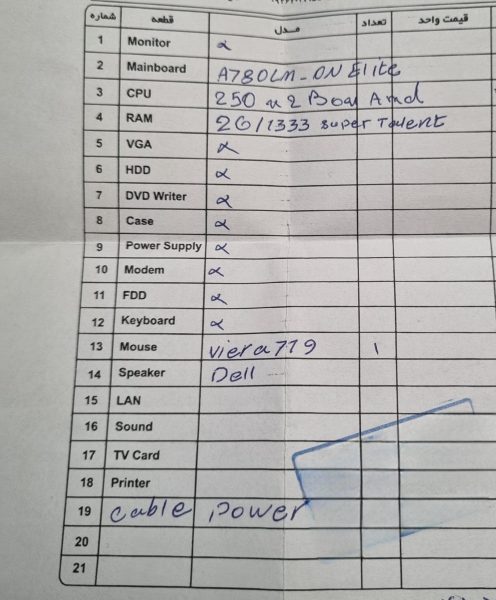 شماره قطعه مدل تعداد قیمت واحد
1 Monitor α
2 Mainboard A780LM-ON Elite
3 CPU 250 u2 Box Amd
4 RAM 2G/1333 super Talent
5 VGA α
6 HDD α
7 DVD Writer α
8 Case α
9 Power Supply α
10 Modem α
11 FDD α
12 Keyboard α
13 Mouse viera 719 1
14 Speaker Dell
15 LAN
16 Sound
17 TV Card
18 Printer
19 cable power
20
21